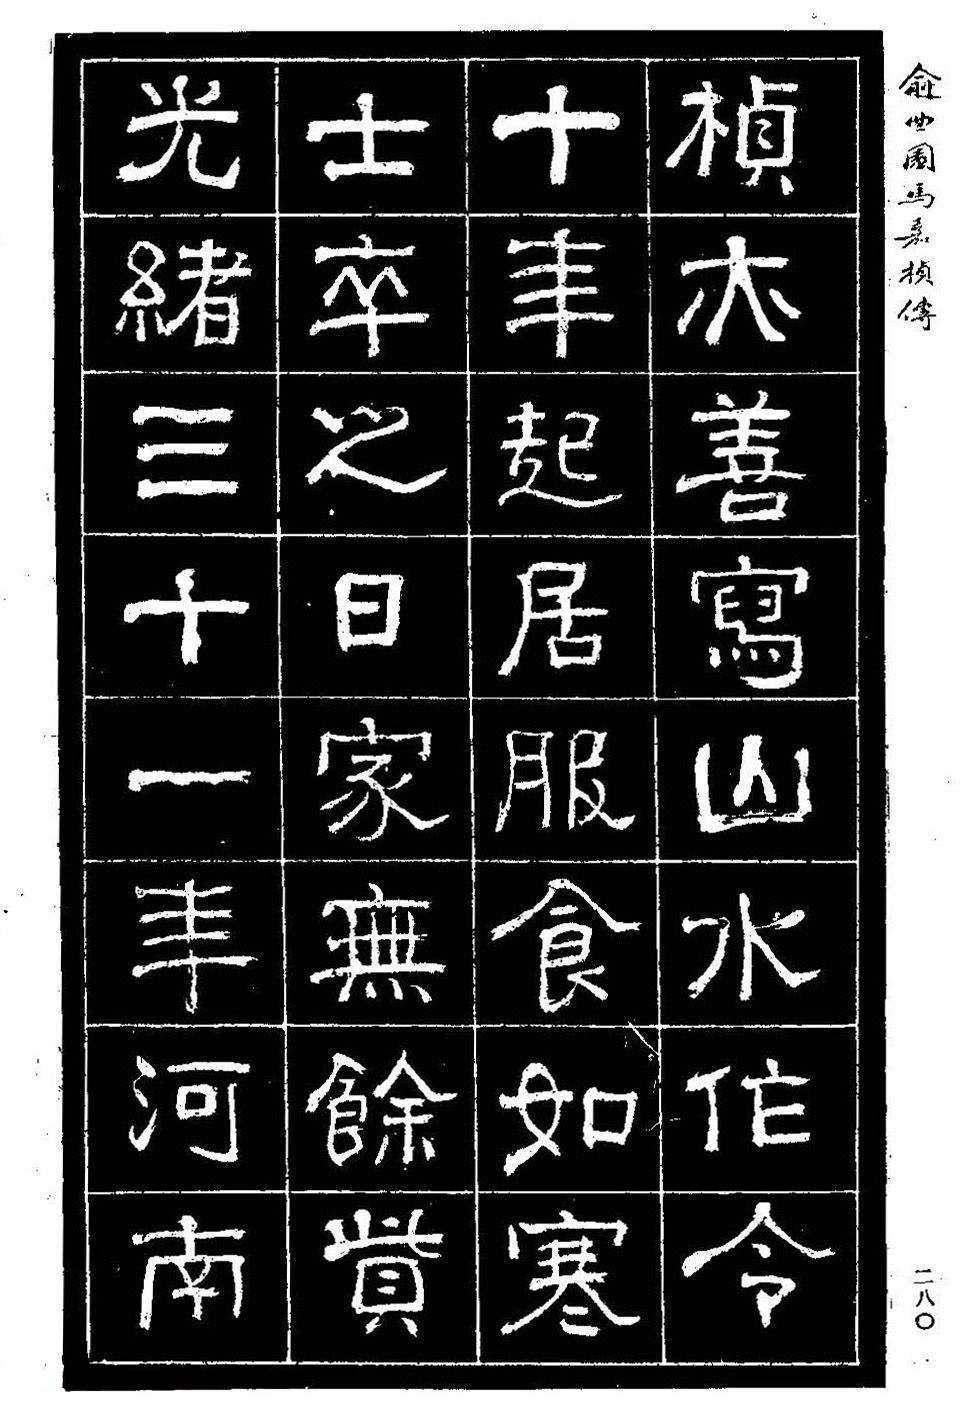 俞曲園馮嘉楨傳
楨亦善寫山水作令
十年起居服食如寒
士卒之日家無餘貲
光緒三十一年河南
二八〇